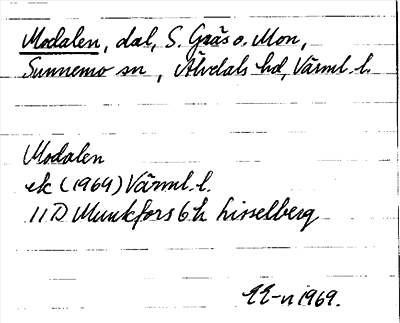 Modalen, dal, S. Gräs o. Mon,
Sunnemo sn, Älvdals hd, Värml. l.
Modalen
ek (1969) Värml. l.
11D Munkfors 6 h Lisselberg
EE-n 1969.